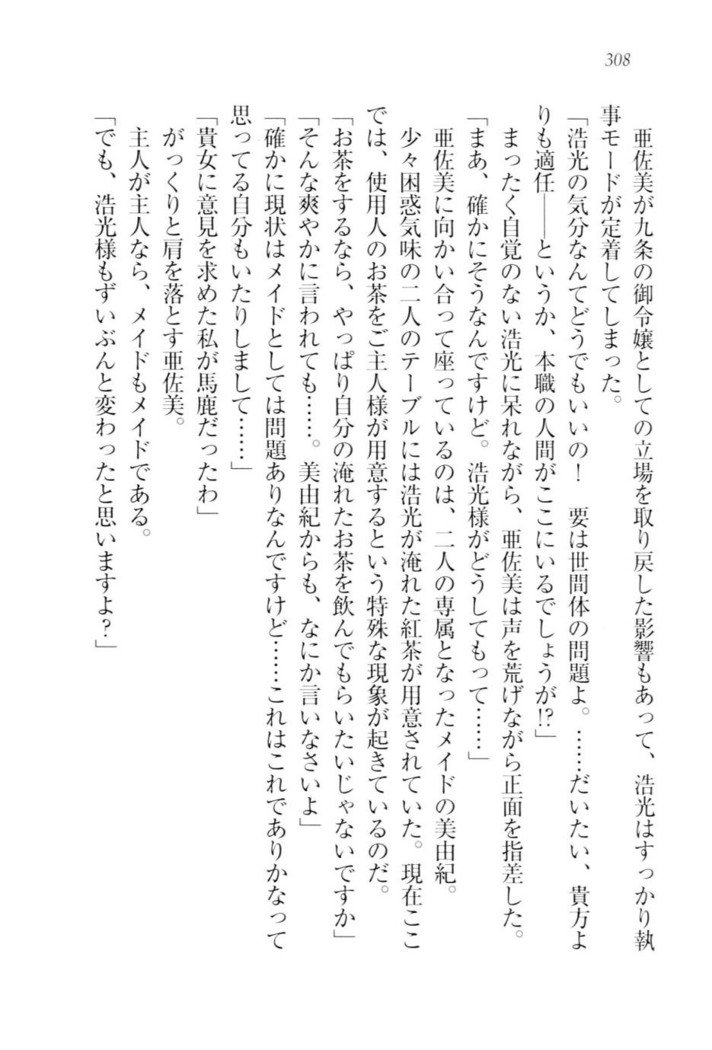 308
亜佐美が九条の御令嬢としての立場を取り戻した影響もあって、浩光はすっかり執
事モードが定着してしまった。
「浩光の気分なんてどうでもいいの！　要は世間体の問題よ。……だいたい、貴方よ
りも適任――というか、本職の人間がここにいるでしょうが!?」
まったく自覚のない浩光に呆れながら、亜佐美は声を荒げながら正面を指差した。
「まあ、確かにそうなんですけど。浩光様がどうしてもって……」
亜佐美に向かい合って座っているのは、二人の専属となったメイドの美由紀。
少々困惑気味の二人のテーブルには浩光が淹れた紅茶が用意されていた。現在ここ
では、使用人のお茶をご主人様が用意するという特殊な現象が起きているのだ。
「お茶をするなら、やっぱり自分の淹れたお茶を飲んでもらいたいじゃないですか」
「そんな爽やかに言われても……。美由紀からも、なにか言いなさいよ」
「確かに現状はメイドとしては問題ありなんですけど……これはこれでありかなって
思ってる自分もいたりしまして……」
「貴女に意見を求めた私が馬鹿だったわ」
がっくりと肩を落とす亜佐美。
主人が主人なら、メイドもメイドである。
「でも、浩光様もずいぶんと変わったと思いますよ？」